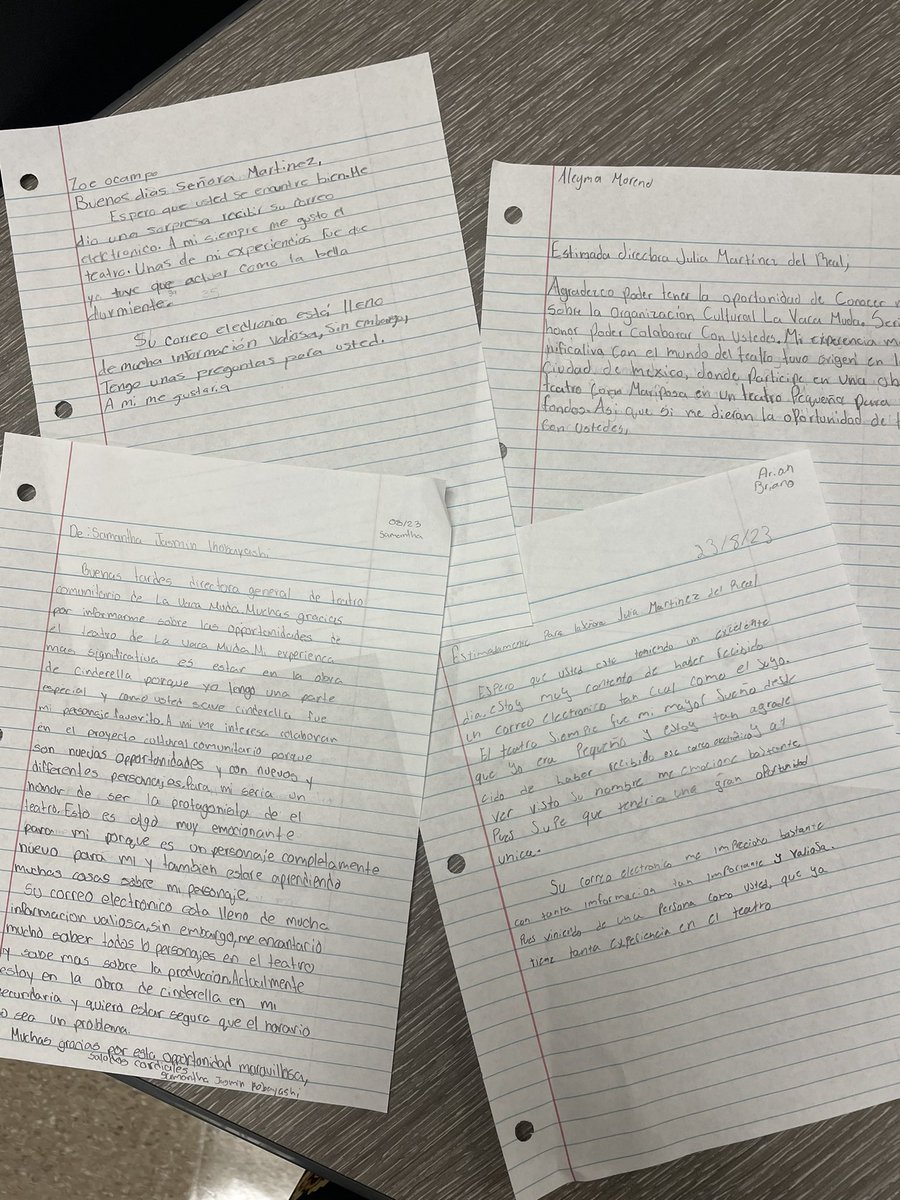 Zoe ocampo
Buenos dias señora Martinez,
Espero que usted se encuentre bien. Me
dio una sorpresa recibir su correo
elektronico. A mi siempre me gusto el
teatro. Unas de mi experiencias fue que
yo tuve que actuar como la bella
durmiente.
Su correo electronico está lleno
de mucha información valiosa, sin embargo,
Tengo unas preguntas para usted.
A mi me gustaria
Aleyma Moreno
Estimada directora Julia Martinez del Real,
Agradezco poder tener la oportunidad de Conocer
sobre la Organización Cultural La Vaca Muda. Serí
honor poder Colaborar Con Ustedes. Mi experiencia m
nificativa Con el mundo del teatro tuvo origen en l
Ciudad de mexico, donde Participe en una ob
teatro Como Mariposa en un teatro Pequeño para
fondos. Asi que si me dieran la oportunidad de t
Con Ustedes,
08/23
Samantha
De: Samantha Jasmin Kobayashi
Buenas tardes directora general de teatro
comunitario de La Vaca Muda. Muchas gracias
por informarme sobre las opportunidades de
el teatro de La Vaca Muda. Mi experienca
mas significativa es estar en la obra
de cinderella porque yo tengo una parte
especial y como usted sabe cinderella fue
mi personaje favorito. A mi me interesa colaboran
en el proyecto cultural comunitario porque
son nuevas opportunidades y con nuevos y
differentes personajes. Para, mi seria un
honor de ser la protagonista de el
teatro. Esto es algo muy emocionante
para mi porque es un personaje completamente
nuevo para mi y tambien estare aprendiendo
muchas cosas sobre mi personaje.
Su correo electrónico esta lleno de mucha
informacion valiosa, sin embargo, me encantario
mucho saber todos lo personajes en el teatro
y sabe mas sobre la produccion. Actualmente
estoy en la obra de cinderella en mi
ecundaria y quiero estar segura que el horario
o sea un problema.
Muchas gracias por esta opportunidad maravillosa,
cordiales
Samantha Jasmin Kobayashi
Arian
Briano
23/8/23
Estimadamente Para Julia Martinez del Real
Espero que usted este teniendo un excelente
dia. estoy muy contento de haber recibido
un correo electronico tan cual como el suyo.
El teatro siempre fue mi mayor sueño desde
que yo era pequeño y estoy tan agrade
cido de haber recibido ese correo electronico y al
ver visto su nombre me emocione bastante
Pues supe que tendria una gran oportunidad
unica.
Su correo electronico me impreciono bastante
con tanta imformacion tan importante y valiosa.
Pues viniendo de una persona como usted, que ya
tiene tanta experiencia en el teatro